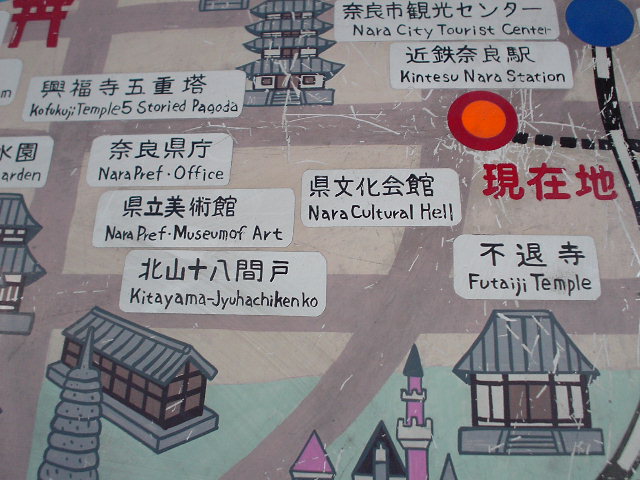 奈良市観光センター
Nara City Tourist Center
近鉄奈良駅
Kintesu Nara Station
興福寺五重塔
Kofukuji Temple 5 Storied Pagoda
現在地
水園
arden
奈良県庁
Nara Pref・Office
県文化会館
Nara Cultural Hell
県立美術館
Nara Pref・Museum of Art
不退寺
Futaiji Temple
北山十八間戸
Kitayama-Jyuhachikenko